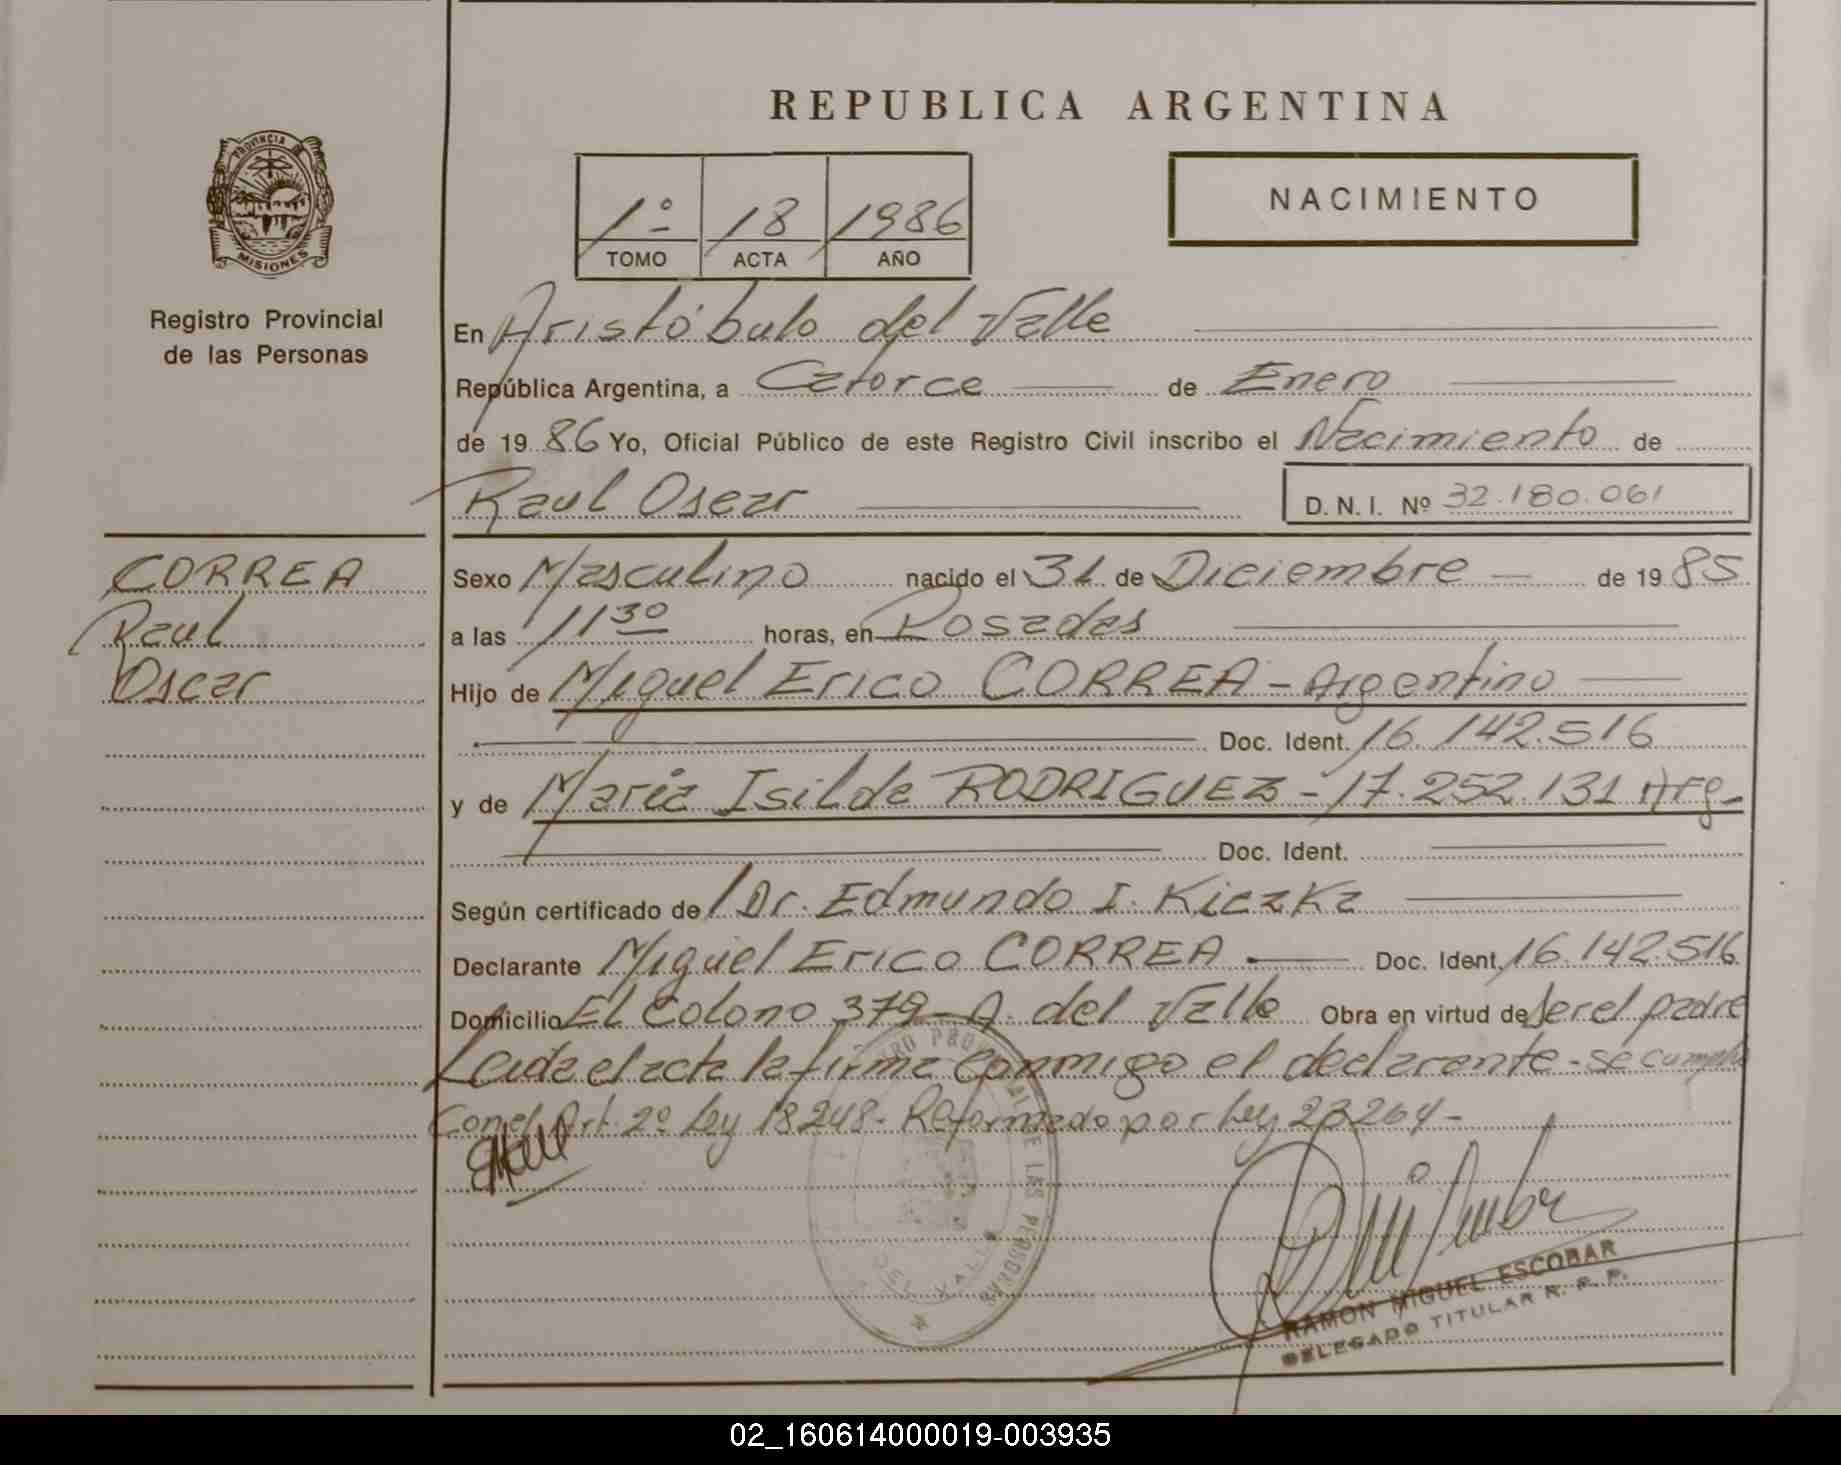 REPUBLICA ARGENTINA
PROVINCIA DE
MISIONES
Registro Provincial
de las Personas
1º 18 1986
TOMO ACTA AÑO
NACIMIENTO
En Aristóbulo del Valle
República Argentina, a Catorce de Enero
de 1986 Yo, Oficial Público de este Registro Civil inscribo el Nacimiento de
Raul Oscar D.N.I. Nº 32.180.061
CORREA
Raul
Oscar
Sexo Masculino nacido el 31 de Diciembre de 1985
a las 11 30 horas, en Posadas
Hijo de Miguel Erico CORREA - Argentino
Doc. Ident. 16.142.516
y de María Isilda RODRIGUEZ - 17.252.131 Arg-
Doc. Ident.
Según certificado de Dr. Edmundo I. Kiczka
Declarante Miguel Erico CORREA Doc. Ident. 16.142.516
Domicilio El Colono 379 - A. del Valle Obra en virtud de ser el padre
Leida el acta la firma conmigo el declarante - se cumple
Con el Art. 2º Ley 18248 - Reformado por Ley 23264 -
REGISTRO PROVINCIAL DE LAS PERSONAS
DEL VALLE
RAMON MIGUEL ESCOBAR
DELEGADO TITULAR R. P. P.
02_160614000019-003935